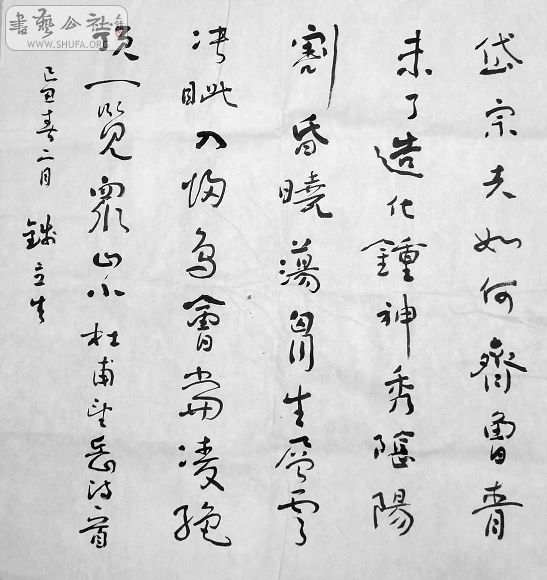 書藝公社
WWW.SHUFA.ORG
岱宗夫如何齊魯青
未了造化鍾神秀陰陽
割昏曉蕩胸生層雲
決眦入歸鳥會當凌絕
頂一覽眾山小杜甫望岳詩一首
己丑春二月 錢立生